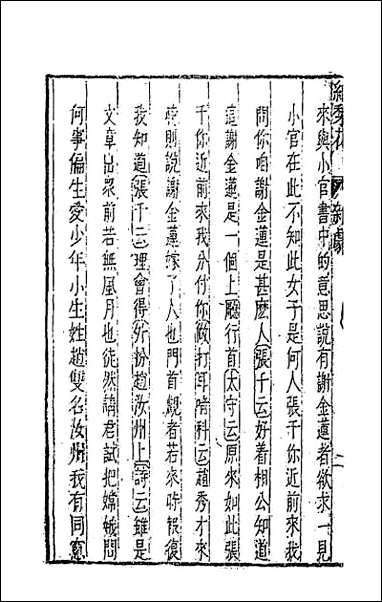 來與小官書中的意思說有謝金蓮者欲求一見
小官在此不知此女子是何人張千你近前來我
問你咱謝金蓮是甚麽人張千云好着相公知道
這謝金蓮是一個上廳行首太守云原來如此張
千你近前來我分付你做打耳喑科云趙秀才來
時則說謝金蓮嫁了人也門首覷者若來時報復
我知道張千云理會得外扮趙汝州上詩云雖是
文章出衆前若無風月也徒然請君試把嫦娥問
何事偏生愛少年小生姓趙雙名汝州我有同窻
紅梨花
雜劇
二